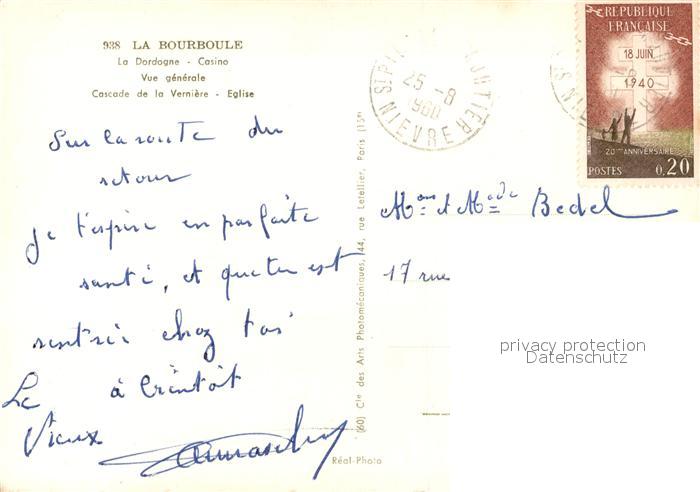 938 LA BOURBOULE
La Dordogne - Casino
Vue générale
Cascade de la Vernière - Eglise
Sur la route du
retour
je t'espère en parfaite
santé, et que tu est
rentrée chez toi
à bientôt
Le
Vieux
(60) Cie des Arts Photomécaniques, 44, rue Letellier, Paris (15e)
Réal-Photo
25-8
1960
NIEVRE
RÉPUBLIQUE
FRANÇAISE
18 JUIN
1940
20ME ANNIVERSAIRE
POSTES 0,20
Mme et Made Bedel
17 rue
privacy protection
Datenschutz